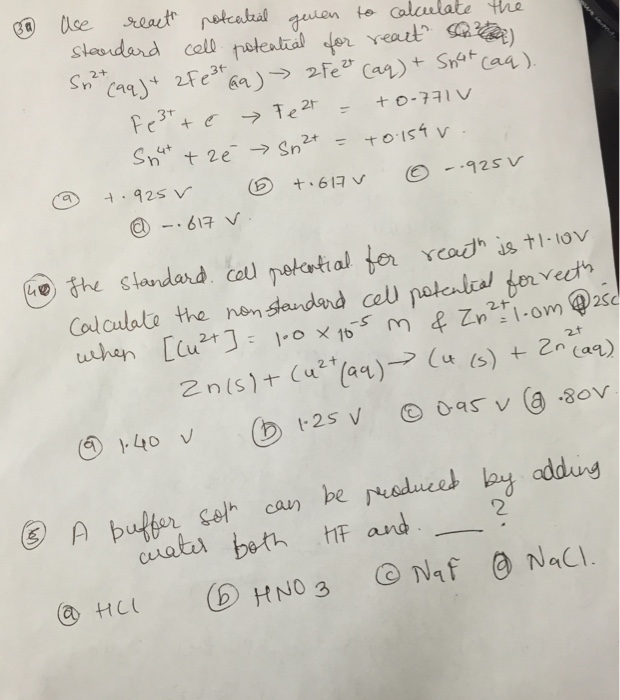 3a Use reactⁿ potential given to calculate the
standard cell potential for reactⁿ
Sn²⁺(aq) + 2Fe³⁺(aq) → 2Fe²⁺(aq) + Sn⁴⁺(aq).
Fe³⁺ + e⁻ → Fe²⁺ = +0.771V
Sn⁴⁺ + 2e⁻ → Sn²⁺ = +0.154 V.
a +.925 V b +.617 V c -.925 V
d -.617 V.
The standard. cell potential for reactⁿ is +1.10V
Calculate the nonstandard cell potential for rectⁿ
when [Cu²⁺] = 1.0 × 10⁻⁵ m & Zn²⁺ = 1.0m @ 25c
Zn(s) + Cu²⁺(aq) → Cu (s) + Zn²⁺(aq)
a 1.40 V b 1.25 V c 0.95 V d .80V.
5 A buffer solⁿ can be produced by adding
water both HF and. __ ?
a HCl b HNO3 c NaF d NaCl.